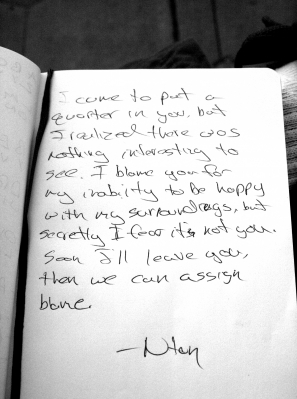 I came to put a
quarter in you, but
I realized there was
nothing interesting to
see. I blame you for
my inability to be happy
with my surroundings, but
secretly I fear it's not you.
Soon I'll leave you,
then we can assign
blame.